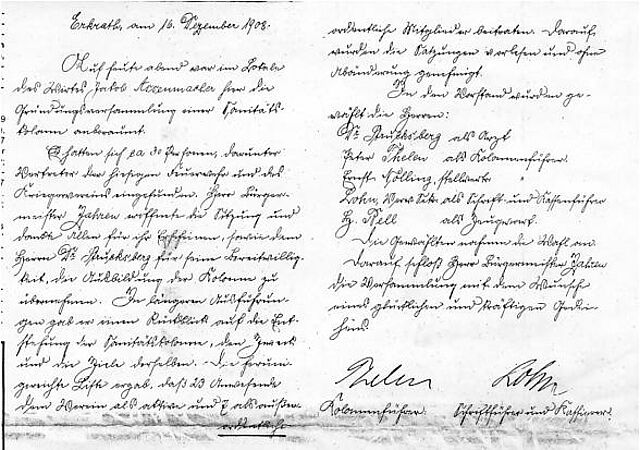 Erkrath, am 16. Dezember 1908.
Auf heute abend war im Lokale
des Wirtes Jakob hier die
Gründungsversammlung einer Sanitäts-
kolonne anberaumt.
Es hatten sich ca 30 Personen, darunter
Vertreter der hiesigen Feuerwehr und des
Kriegervereins eingefunden. Herr Bürger-
meister Zahren eröffnete die Sitzung und
dankte Allen für ihr Erscheinen, sowie dem
Herrn Dr. für seine Bereitwillig-
keit, die Ausbildung der Kolonne zu
übernehmen. In längeren Ausführun-
gen gab er einen Rückblick auf die Ent-
stehung der Sanitätskolonne, den Zweck
und die Ziele derselben. Die herum-
gereichte Liste ergab, daß 23 Anwesende
dem Verein als aktive und 7 als außer-
ordentliche
ordentliche Mitglieder beitraten. Darauf
wurden die Satzungen verlesen und ohne
Abänderung genehmigt.
In den Vorstand wurden ge-
wählt die Herren:
Dr. als Arzt
Peter Thelen als Kolonnenführer.
Ernst Nölling, stellvertr. "
Lohn, als Schrift- und Kassenführer
H. Thell als Zeugwart.
Die Gewählten nahmen die Wahl an.
Darauf schloß Herr Bürgermeister Zahren
die Versammlung mit dem Wunsche
eines glücklichen und kräftigen Gedei-
hens
Thelen
Kolonnenführer. Schriftführer und Kassierer.